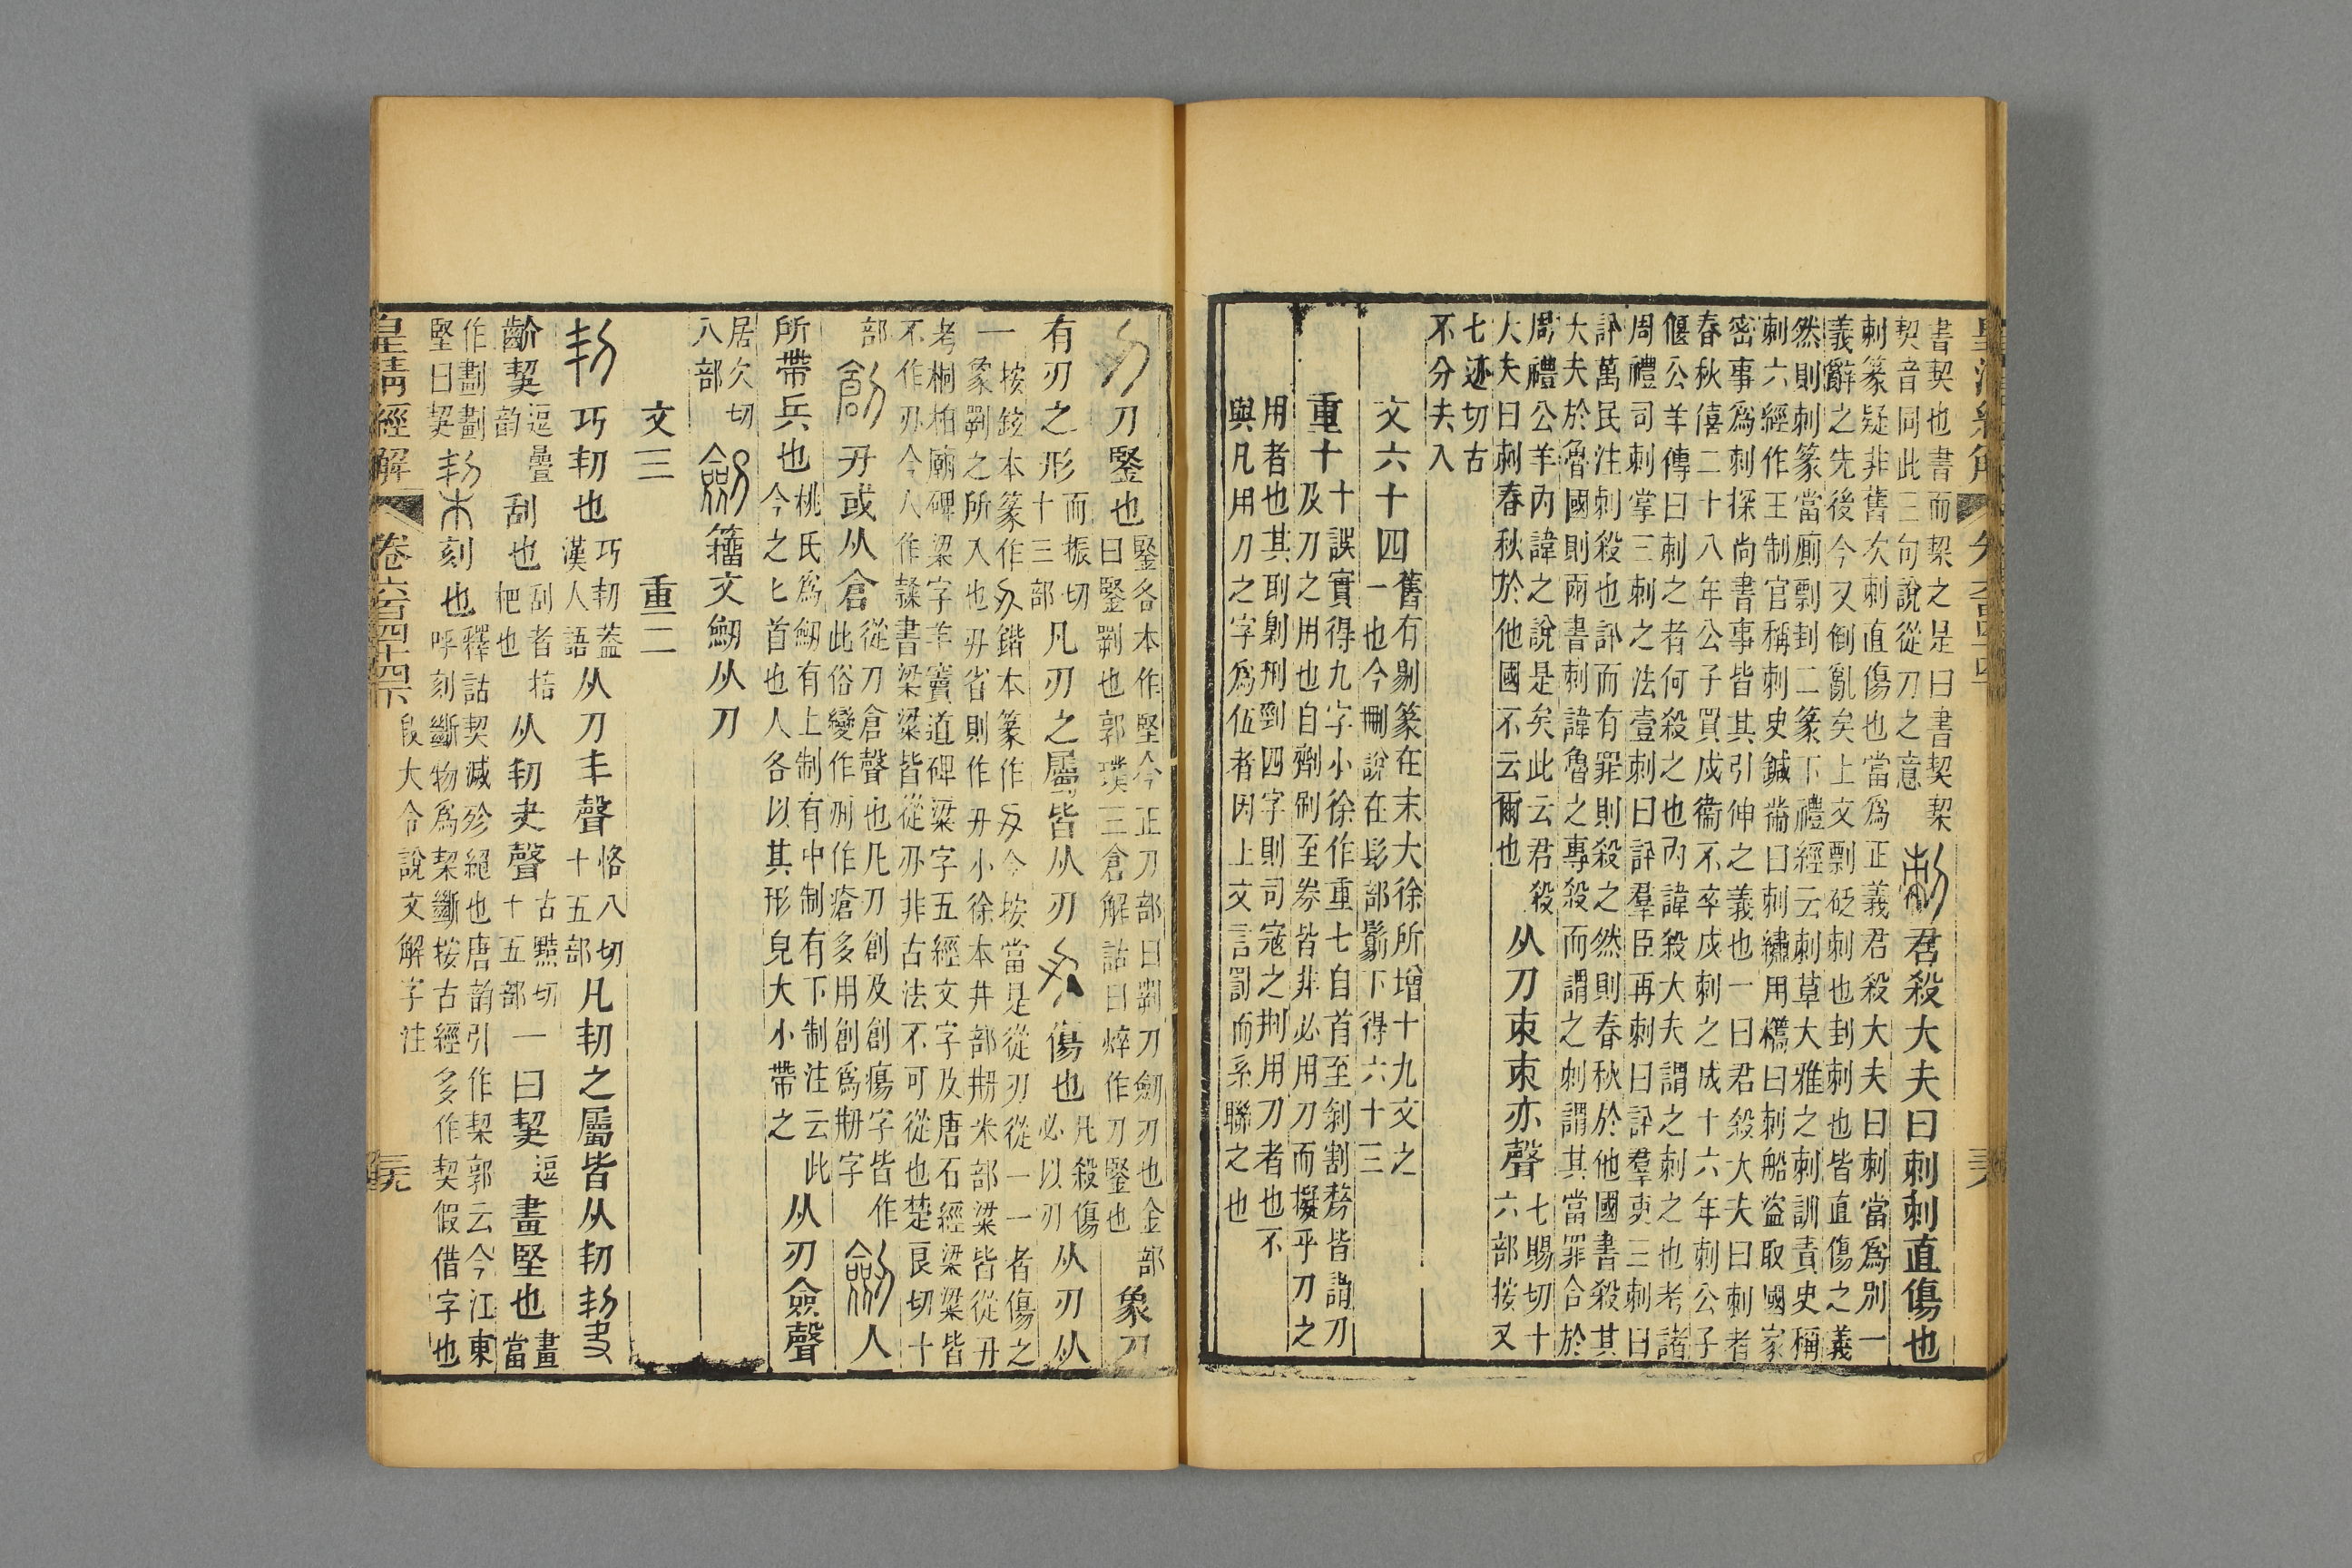 書契也書而契之是曰書契契
契音同此三句說從刀之意
君殺大夫曰刺刺直傷也
刺篆疑非舊次刺直傷也當爲正義君殺大夫曰刺當爲別一
義辭之先後今又倒亂矣上文剽砭刺也刲刺也皆直傷之義
然則刺篆當廁剽刲二篆下禮經云刺草大雅之刺訓責史稱
刺六經作王制官稱刺史鍼黹曰刺繡用櫓曰刺船盜取國家
密事爲刺探尚書事皆其引伸之義也一曰君殺大夫曰刺者
春秋僖二十八年公子買戍衞不卒戍刺之成十六年刺公子
偃公羊傳曰刺之者何殺之也內諱殺大夫謂之刺之也考諸
周禮司刺掌三刺之法壹刺曰訊羣臣再刺曰訊羣吏三刺曰
訊萬民注刺殺也訊而有罪則殺之然則春秋於他國書殺其
大夫於魯國則兩書刺諱魯之專殺而謂之刺謂其當罪合於
周禮公羊內諱之說是矣此云君殺
大夫曰刺春秋於他國不云爾也
从刀朿朿亦聲
七賜切十
六部按又
七迹切古
不分去入
文六十四
舊有剔篆在末大徐所增十九文之
一也今刪說在髟部鬄下得六十三
重十
十誤實得九字小徐作重七自首至剝割剺皆謂刀
及刀之用也自劑刷至券皆非必用刀而擬乎刀之
用者也其刵劓刑剄四字則司寇之荆用刀者也不
與凡用刀之字爲伍者因上文言罰而系聯之也
刀鋻也
鋻各本作堅今正刀部曰劉刀劒刃也金部
曰鋻劉也郭璞三倉解詁曰焠作刀鋻也
象刀
有刃之形
而振切
十三部
凡刃之屬皆从刃
傷也
凡殺傷
必以刃
从刃从
一
按鉉本篆作鍇本篆作今按當是從刃從一一者傷之
象劉之所入也丹省則作丹小徐本井部㓝米部粱皆從丹
考桐柏廟碑梁字羊竇道碑粱字五經文字及唐石經梁粱皆
不作刅今人作隸書梁粱皆從刅非古法不可從也楚良切十
部
刅或从倉
從刀倉聲也凡刀創及創瘍字皆作
此俗變作刱作瘡多用創爲㓝字
人
所帶兵也
桃氏爲劒有上制有中制有下制注云此
今之匕首也人各以其形皃大小帶之
从刃僉聲
居欠切
八部
籒文劒从刀
文三　重二
巧㓞也
巧㓞葢
漢人語
从刀丯聲
恪八切
十五部
凡㓞之屬皆从㓞
齘契
逗疊
韵
刮也
刮者掊
杷也
从㓞夬聲
古黠切
十五部
一曰契
逗
畫堅也
畫
當
作劃劃
堅曰契
刻也
釋詁契滅殄絕也唐韵引作契郭云今江東
呼刻斷物爲契斷按古經多作契假借字也
皇清經解
卷六百四十四下
段大令說文解字注
三十九